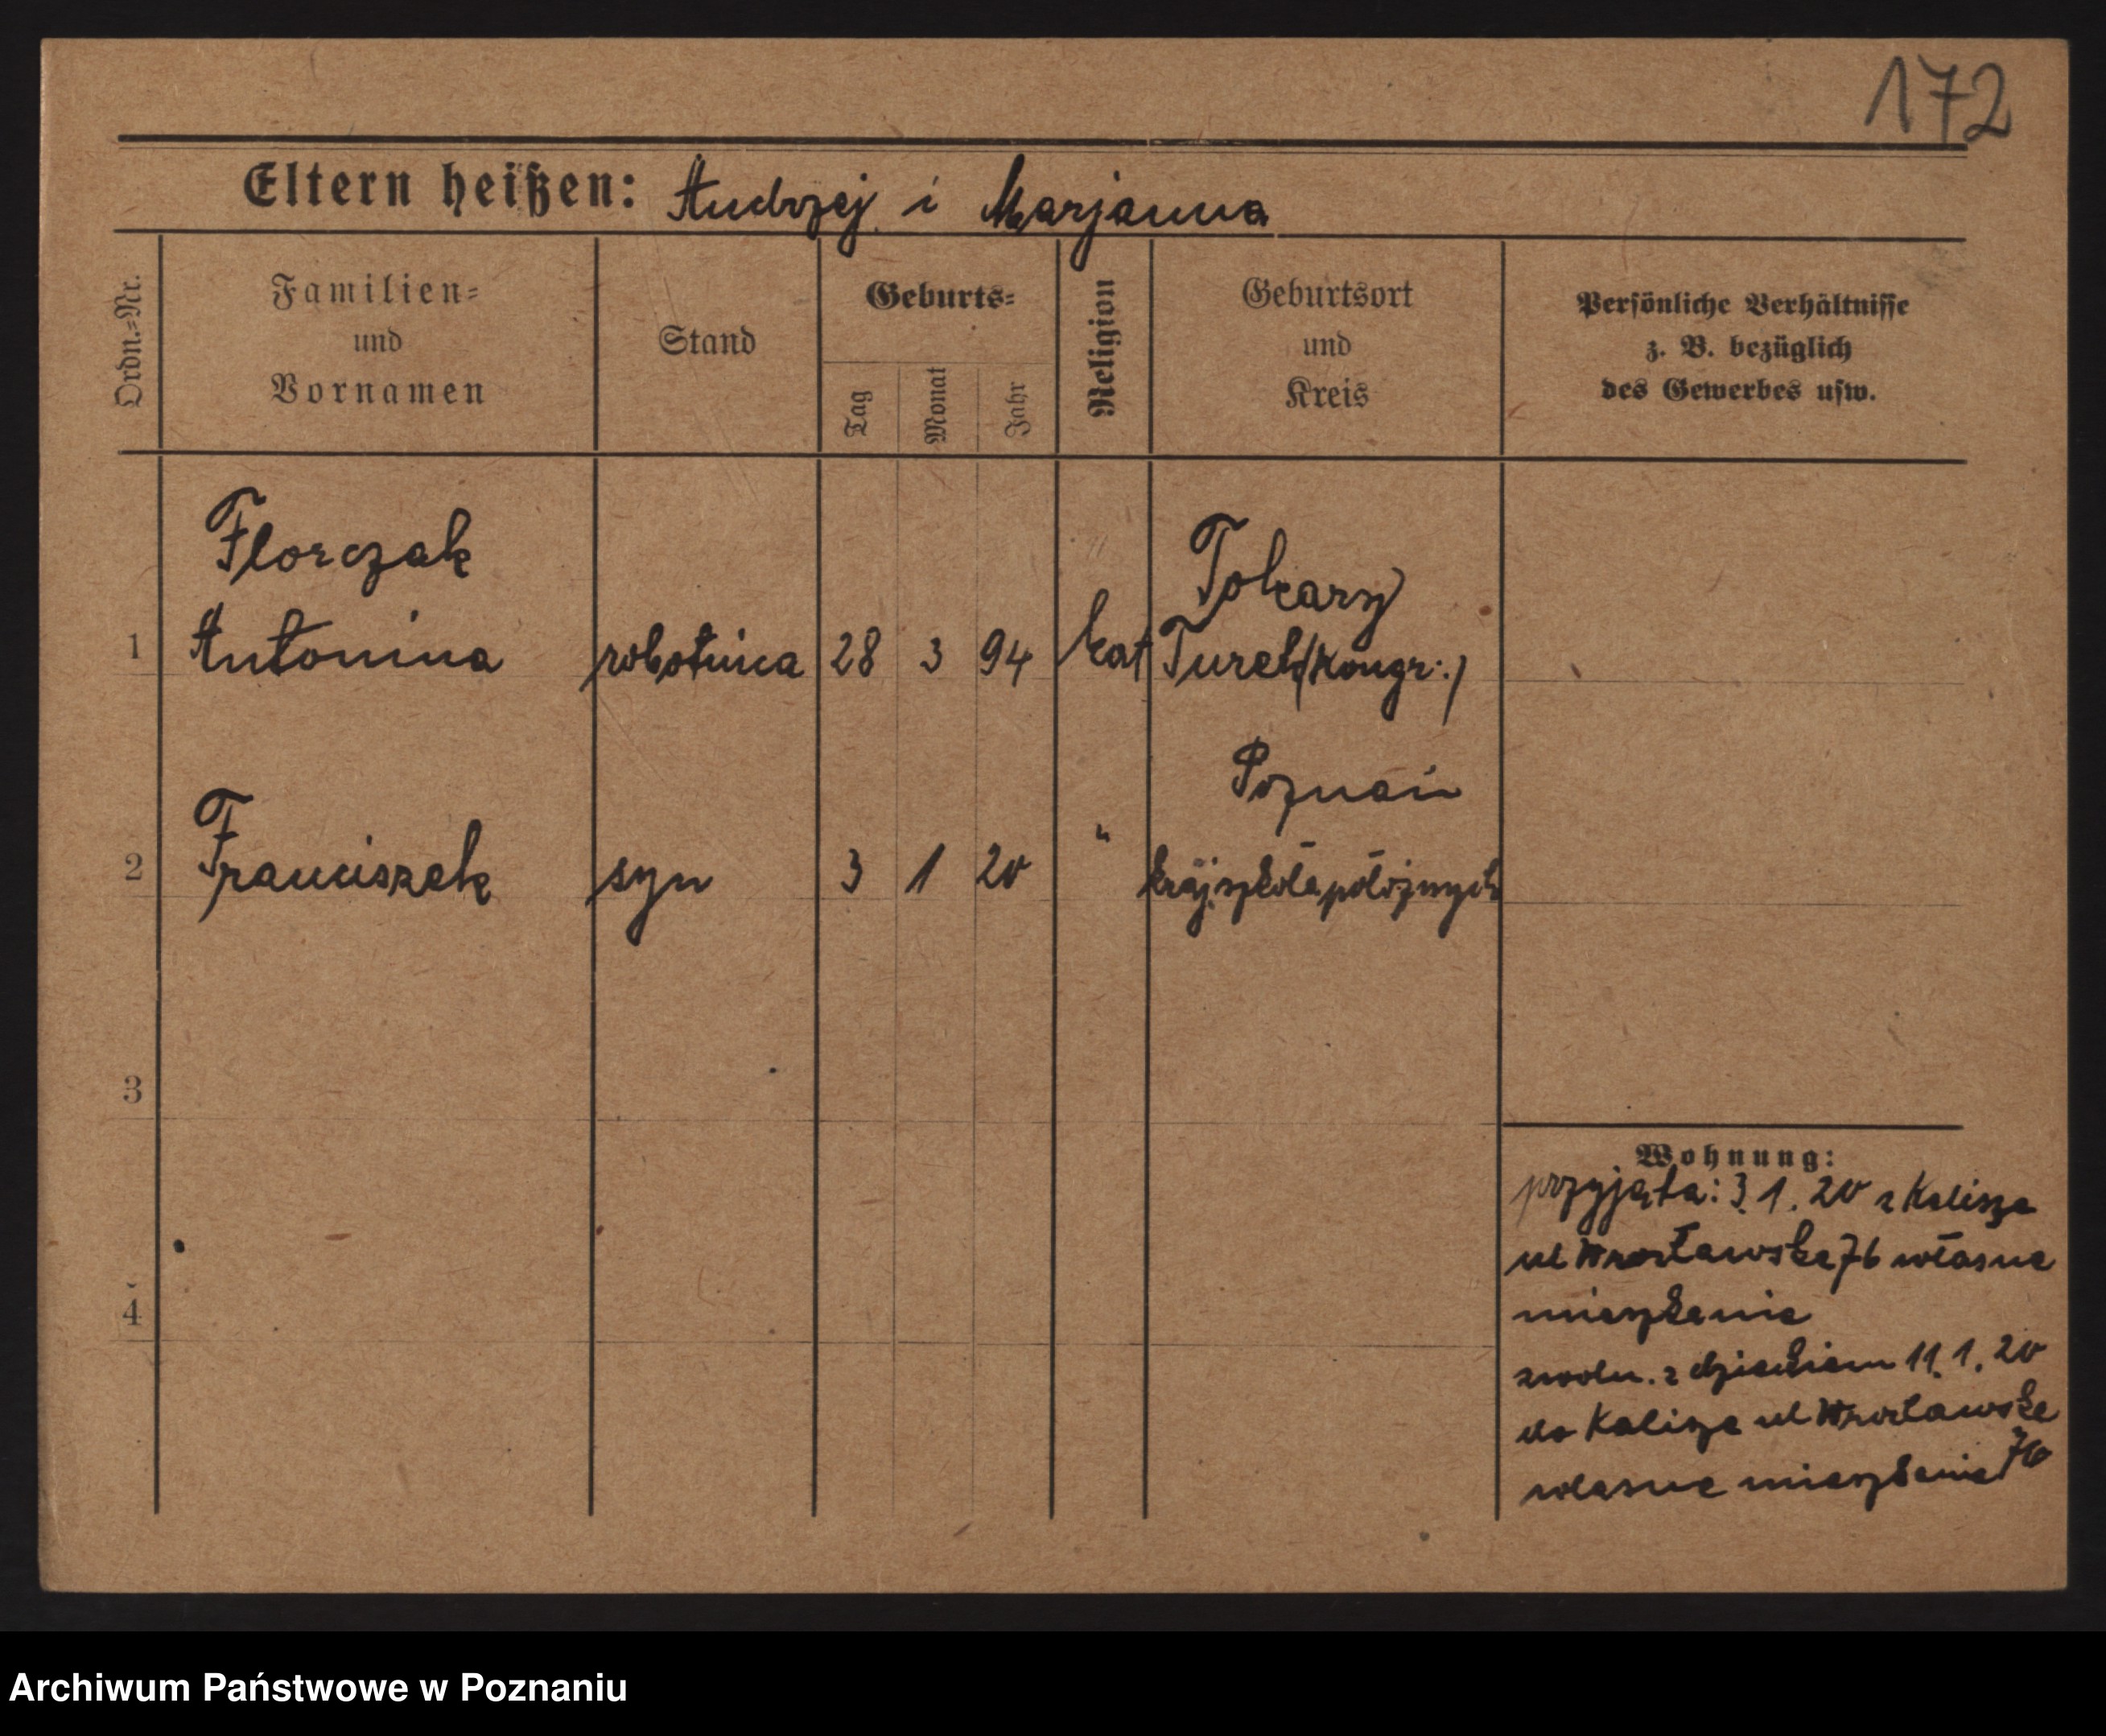 172
Eltern heißen: Andrzej i Marjanna
Ordn.-Nr.
Familien-
und
Vornamen
Stand
Geburts-
Tag
Monat
Jahr
Religion
Geburtsort
und
Kreis
Persönliche Verhältnisse
z. B. bezüglich
des Gewerbes usw.
Florczak
Tokary
1 Antonina robotnica 28 3 94 kat Turek (Kongr:)
Poznań
2 Franciszek syn 3 1 20 " kraj. szkoła położnych
3
4
Wohnung:
przyjęta: 3.1.20 z Kalisza
ul Wrocławska 76 własne
mieszkanie
zwoln. z dzieckiem 11.1.20
do Kalisza ul Wrocławska
76
własne mieszkanie
Archiwum Państwowe w Poznaniu